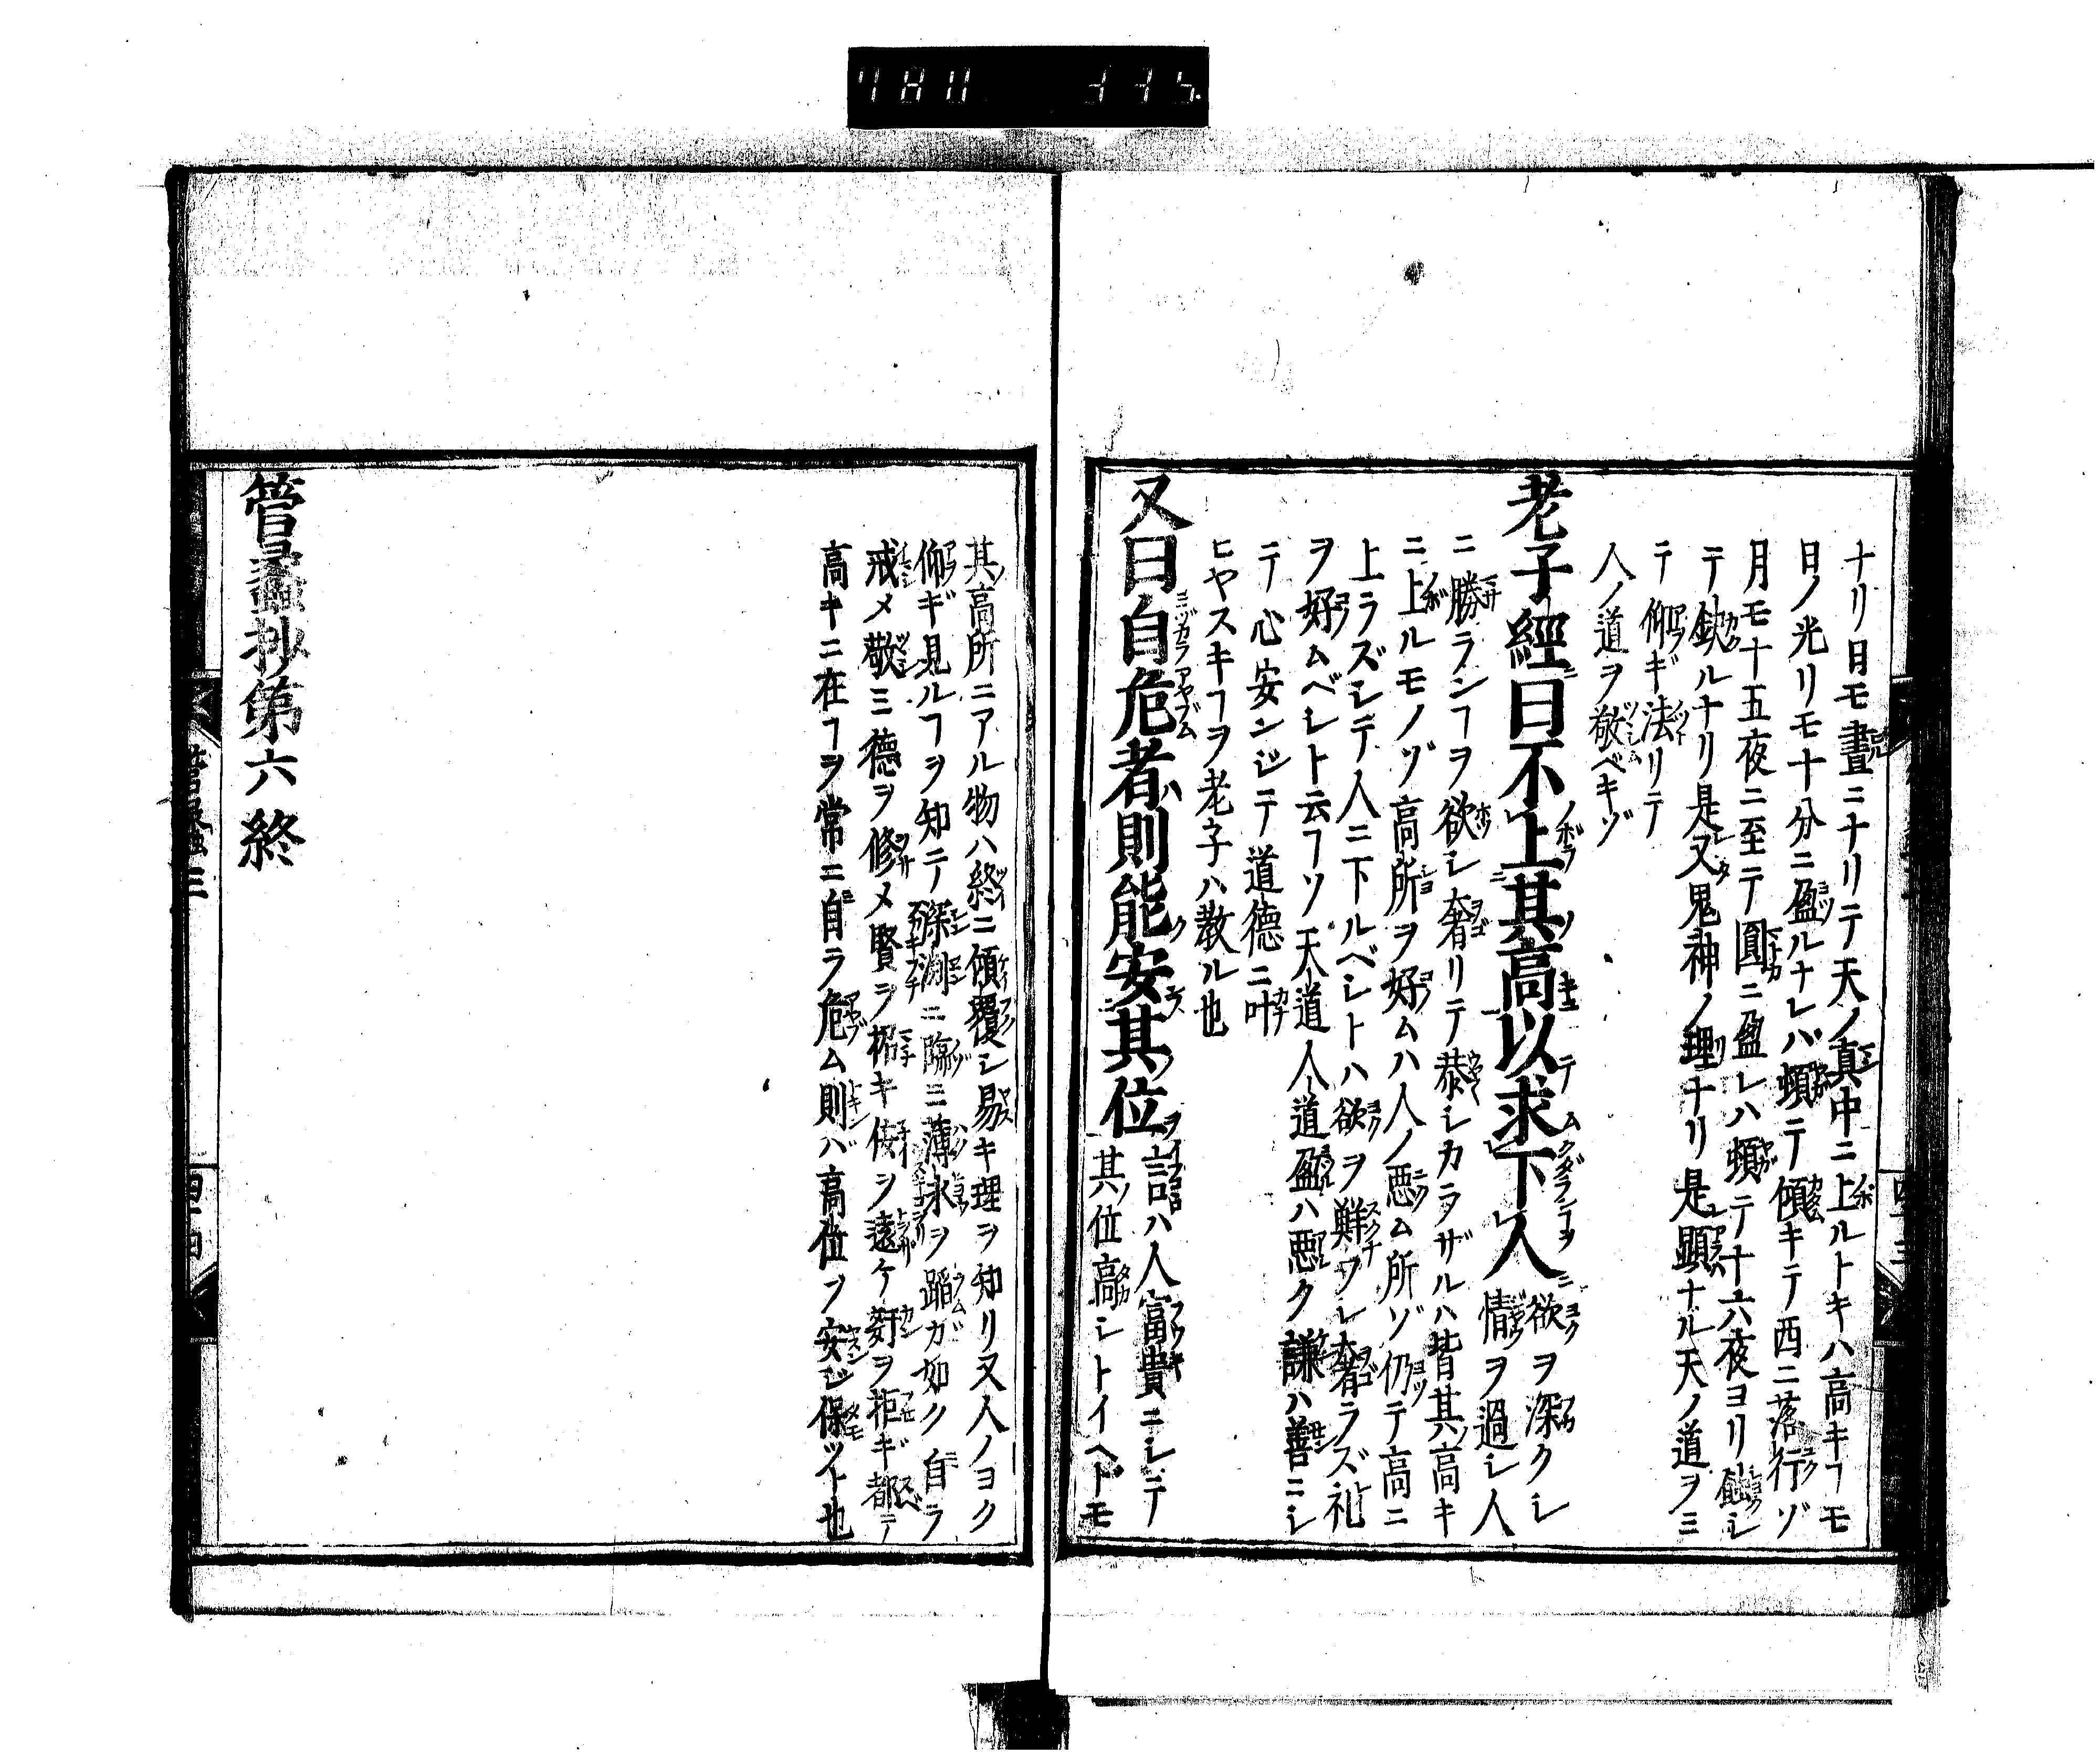 ナリ日モ晝ニナリテ天ノ真中ニ上ルトキハ高キヿモ
日ノ光リモ十分ニ盈ルナレバ頓テ傾キテ西ニ落行ゾ
月モ十五夜ニ至テ圓ニ盈レハ頓テ十六夜ヨリ蝕シ
テ鈌ルナリ是又鬼神ノ理ナリ是顕ナル天ノ道ヲミ
テ仰ギ法リテ
人ノ道ヲ敬ベキゾ
老子經曰不上其高以求下人
欲ヲ深クシ
情ヲ過シ人
ニ勝ランヿヲ欲シ奢リテ恭シカラザルハ皆其高キ
ニ上ルモノゾ高所ヲ好ムハ人ノ悪ム所ゾ仍テ高ニ
上ラズシテ人ニ下ルベシトハ欲ヲ鮮フシ奢ラズ礼
ヲ好ムベシト云フソ天道人道盈ハ悪ク謙ハ善ニシ
テ心安ンジテ道德ニ叶
ヒヤスキヿヲ老子ハ教ル也
又曰自危者則能安其位
語ハ人冨貴ニシテ
其位高シトイヘドモ
其高所ニアル物ハ終ニ傾覆シ易キ理ヲ知リ又人ノヨク
仰ギ見ルヿヲ知テ深渕ニ臨ミ薄氷ヲ蹈ガ如ク自ラ
戒メ敬ミ德ヲ修メ賢ヲ招キ侫ヲ遠ケ姧ヲ拒ギ都テ
高キニ在ヿヲ常ニ自ラ危ム則ハ高位ヲ安シ保ツト也
管蠡抄第六終
管蠡三
四十四